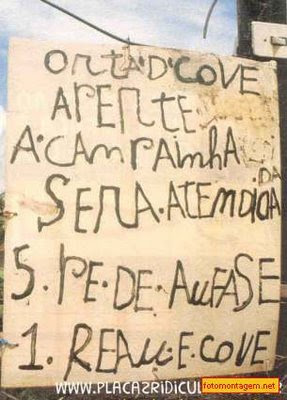 ORTA·D'COVE
APERTE·
A·CAMPAINHA
SERA·ATEMDIDA
5. PE·DE·AUFASE
1. REAU·E·COVE
WWW.PLACAZRIDICUL
fotomontagem.net